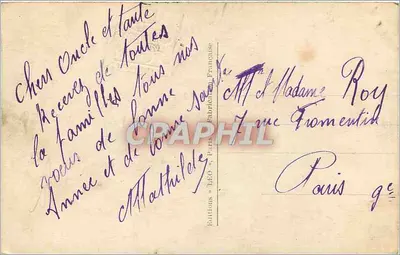 Chers Oncle et tante
Recevez de toutes
la famille tous nos
vœux de bonne
Année et de bonne santé
Mathilde
Mr et Madame Roy
7 rue Fromentin
Paris 9e
CRAPHIL
Editions "LEO"
Française